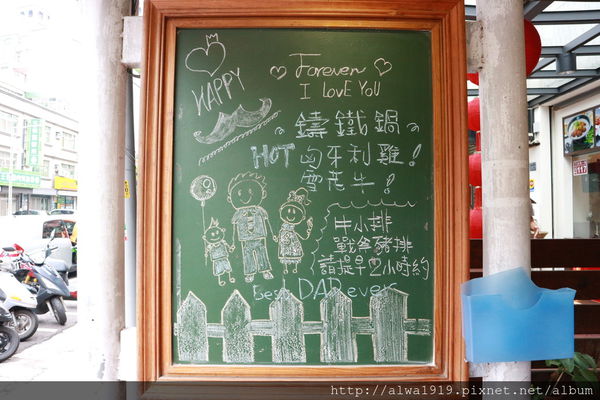 HAPPY
Forever
I LOVE YOU
鑄鐵鍋
HOT 匈牙利雞!
雪花牛!
牛小排
戰斧豬排
請提早2小時約
Best DAD ever
http://alwa1919.pixnet.net/album